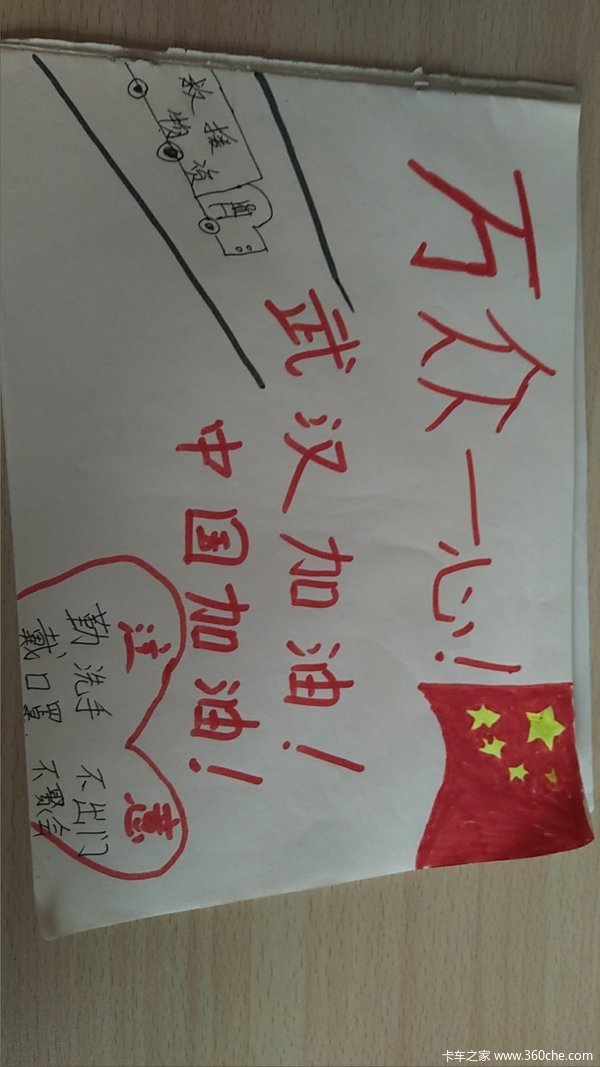 万众一心!
武汉加油!
中国加油!
救援
物资
注意
勤洗手 不出门
戴口罩 不聚会
卡车之家 www.360che.com